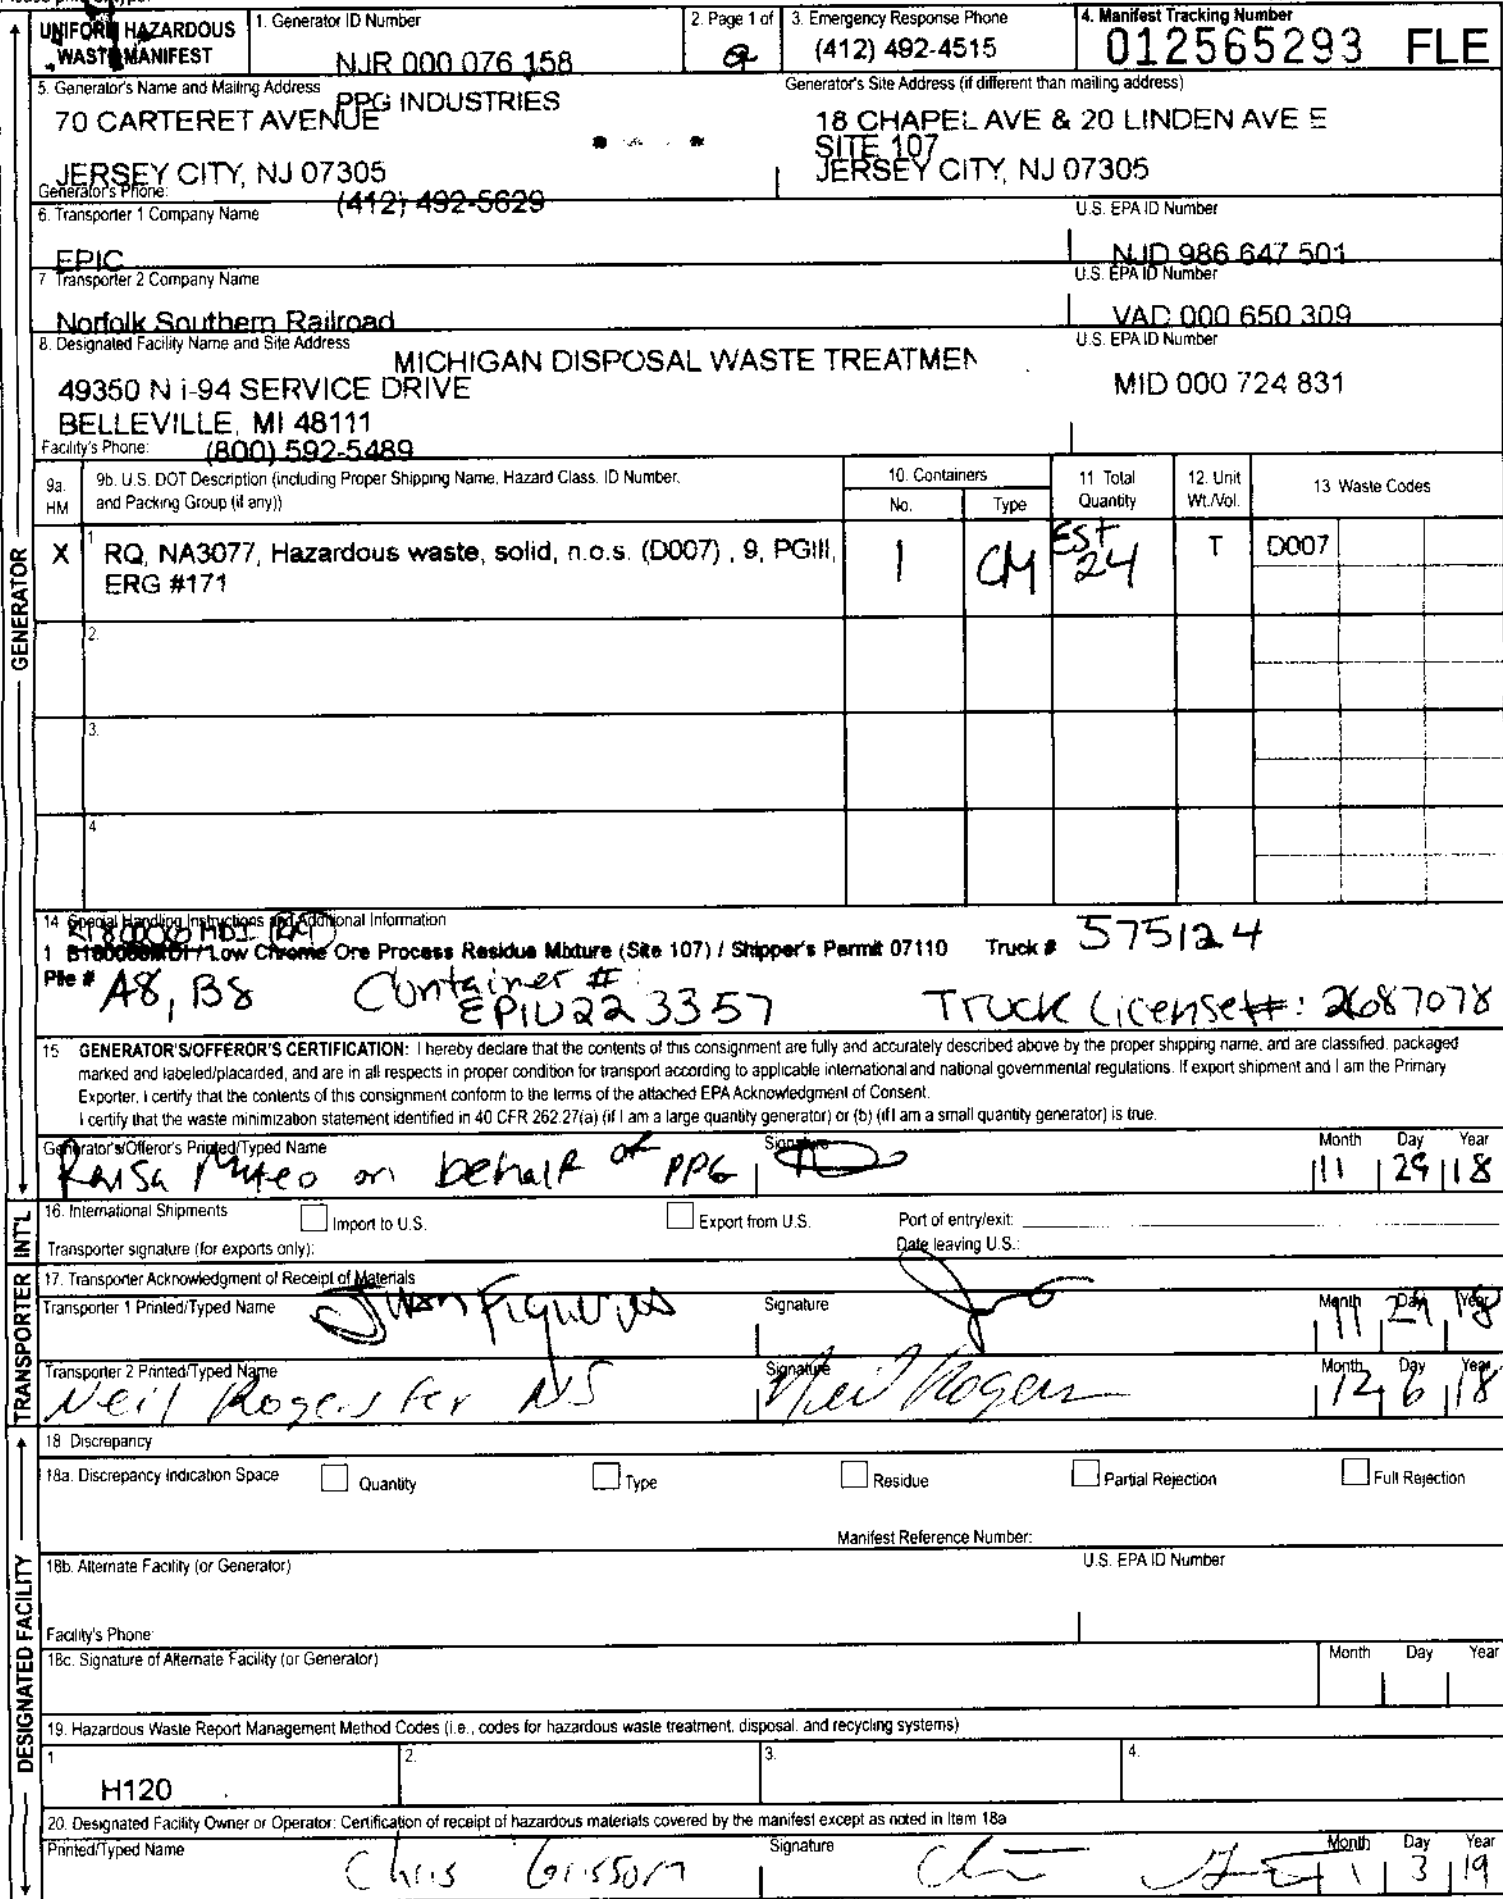 UNIFORM HAZARDOUS WASTE MANIFEST
1. Generator ID Number
NJR 000 076 158
2. Page 1 of
2
3. Emergency Response Phone
(412) 492-4515
4. Manifest Tracking Number
012565293 FLE
5. Generator's Name and Mailing Address
PPG INDUSTRIES
70 CARTERET AVENUE
JERSEY CITY, NJ 07305
Generator's Phone:
(412) 492-5629
Generator's Site Address (if different than mailing address)
18 CHAPEL AVE & 20 LINDEN AVE E
SITE 107
JERSEY CITY, NJ 07305
6. Transporter 1 Company Name
EPIC
U.S. EPA ID Number
NJD 986 647 501
7 Transporter 2 Company Name
Norfolk Southern Railroad
U.S. EPA ID Number
VAD 000 650 309
8. Designated Facility Name and Site Address
MICHIGAN DISPOSAL WASTE TREATMEN
49350 N i-94 SERVICE DRIVE
BELLEVILLE, MI 48111
Facility's Phone:
(800) 592-5489
U.S. EPA ID Number
MID 000 724 831
9a. HM
9b. U.S. DOT Description (including Proper Shipping Name, Hazard Class, ID Number, and Packing Group (if any))
10. Containers
No.
Type
11 Total Quantity
12. Unit Wt./Vol.
13 Waste Codes
X
1
RQ, NA3077, Hazardous waste, solid, n.o.s. (D007) , 9, PGIII,
ERG #171
1
CM
EST
24
T
D007
2.
3.
4.
14 Special Handling Instructions and Additional Information
1 / Low Chrome Ore Process Residue Mixture (Site 107) / Shipper's Permit 07110 Truck # 575124
Pile # A8, B8 Container #:
EPIU22 3357 Truck License#: 2687078
15 GENERATOR'S/OFFEROR'S CERTIFICATION: I hereby declare that the contents of this consignment are fully and accurately described above by the proper shipping name, and are classified, packaged
marked and labeled/placarded, and are in all respects in proper condition for transport according to applicable international and national governmental regulations. If export shipment and I am the Primary
Exporter, I certify that the contents of this consignment conform to the terms of the attached EPA Acknowledgment of Consent.
I certify that the waste minimization statement identified in 40 CFR 262.27(a) (if I am a large quantity generator) or (b) (if I am a small quantity generator) is true.
Generator's/Offeror's Printed/Typed Name
Raisa Mateo on behalf of PPG
Signature
Month Day Year
11 29 18
16. International Shipments
Import to U.S.
Export from U.S.
Port of entry/exit:
Transporter signature (for exports only):
Date leaving U.S.:
17. Transporter Acknowledgment of Receipt of Materials
Transporter 1 Printed/Typed Name
Juan
Signature
Month Day Year
11 29 18
Transporter 2 Printed/Typed Name
Neil Rogers for NS
Signature
Neil Rogers
Month Day Year
12 6 18
18 Discrepancy
18a. Discrepancy Indication Space
Quantity
Type
Residue
Partial Rejection
Full Rejection
Manifest Reference Number:
18b. Alternate Facility (or Generator)
U.S. EPA ID Number
Facility's Phone:
18c. Signature of Alternate Facility (or Generator)
Month Day Year
19. Hazardous Waste Report Management Method Codes (i.e., codes for hazardous waste treatment, disposal, and recycling systems)
1
H120
2.
3.
4.
20. Designated Facility Owner or Operator: Certification of receipt of hazardous materials covered by the manifest except as noted in Item 18a
Printed/Typed Name
Chris Grissom
Signature
Month Day Year
1 3 19
GENERATOR
INT'L
TRANSPORTER
DESIGNATED FACILITY